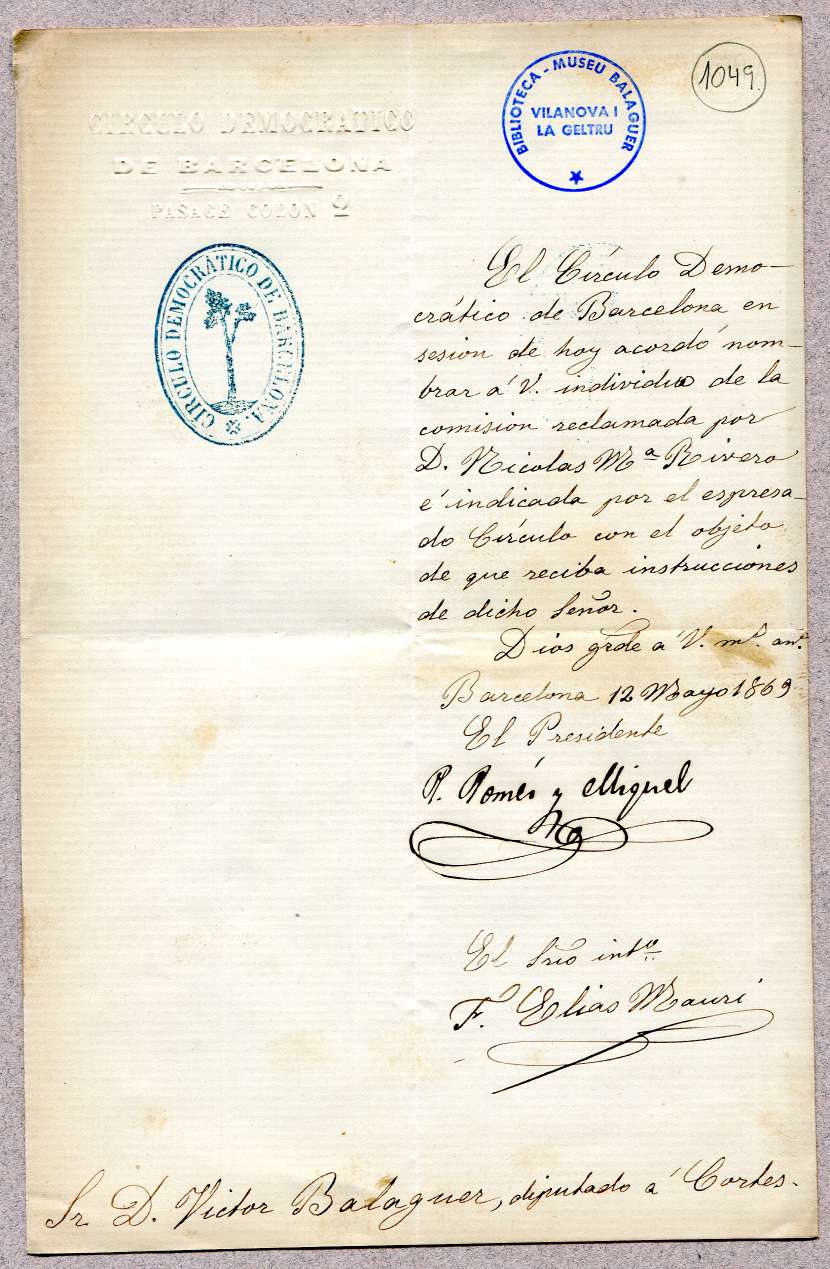 1049
BIBLIOTECA - MUSEU BALAGUER
VILANOVA I
LA GELTRU
CIRCULO DEMOCRATICO
DE BARCELONA
PASAGE COLON 2
CÍRCULO DEMOCRÁTICO DE BARCELONA.
El Círculo Demo-
crático de Barcelona en
sesion de hoy acordó nom-
brar á V. individuo de la
comision reclamada por
D. Nicolas Mª Rivero
é indicada por el espresa-
do Círculo con el objeto
de que reciba instrucciones
de dicho Señor.
Dios gr̃de a V. mˢ. anˢ.
Barcelona 12 Mayo 1869
El Presidente
P. Roméo y Miquel
El Srio intº
F. Elias Mauri
Sr. D. Victor Balaguer, diputado á Cortes.